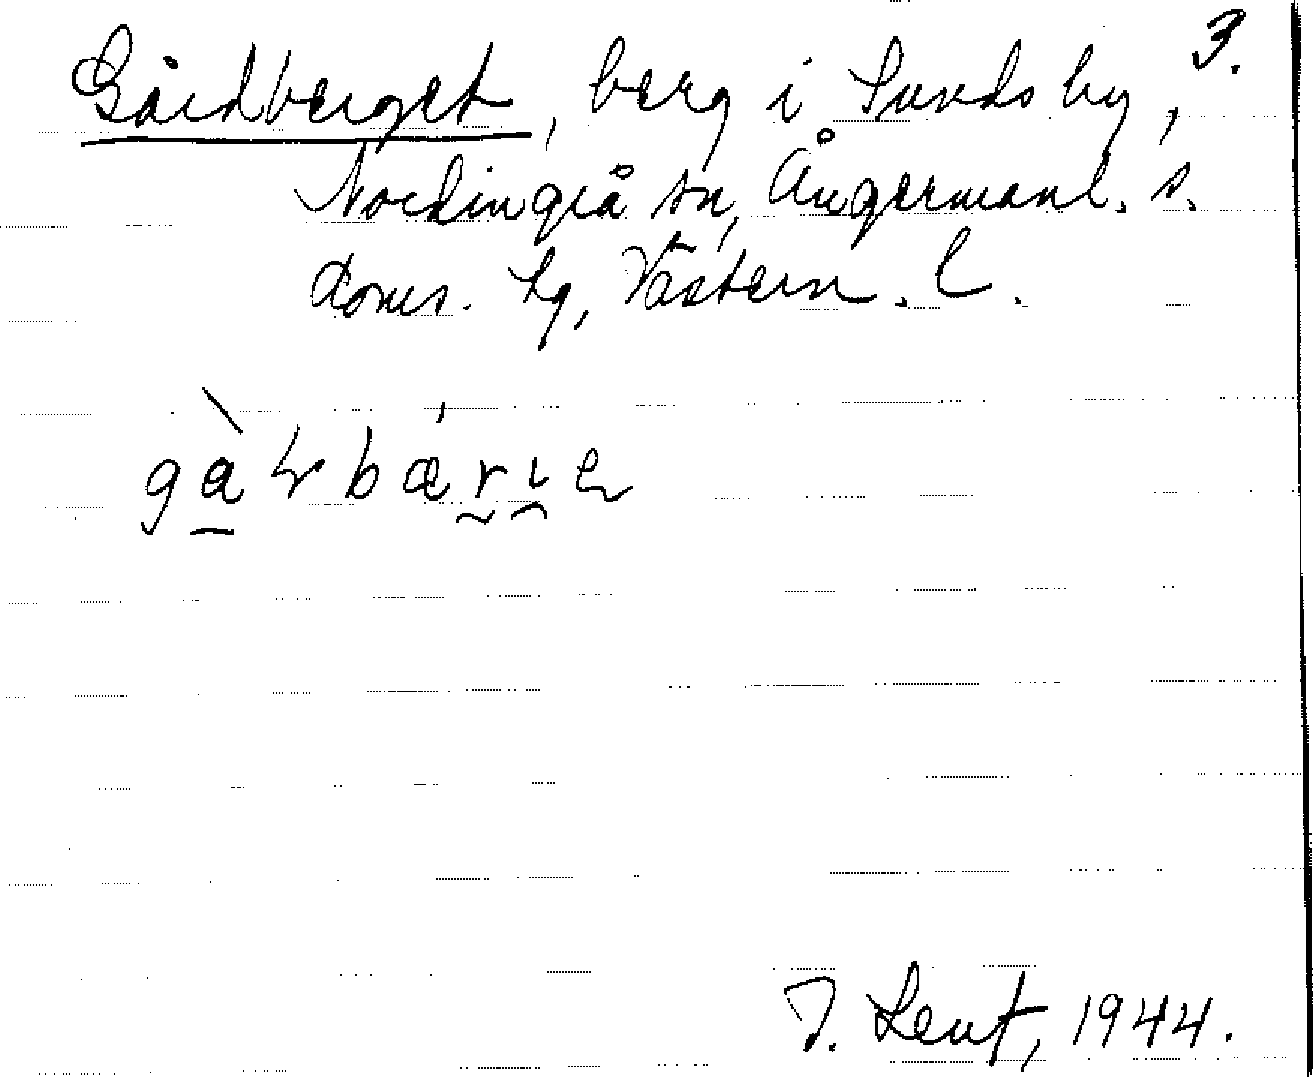 3.
Gårdberget, berg i Sunds by,
Nordingrå sn, Ångermanl. s.
doms. hg, Västern. l.
J. Lent, 1944.